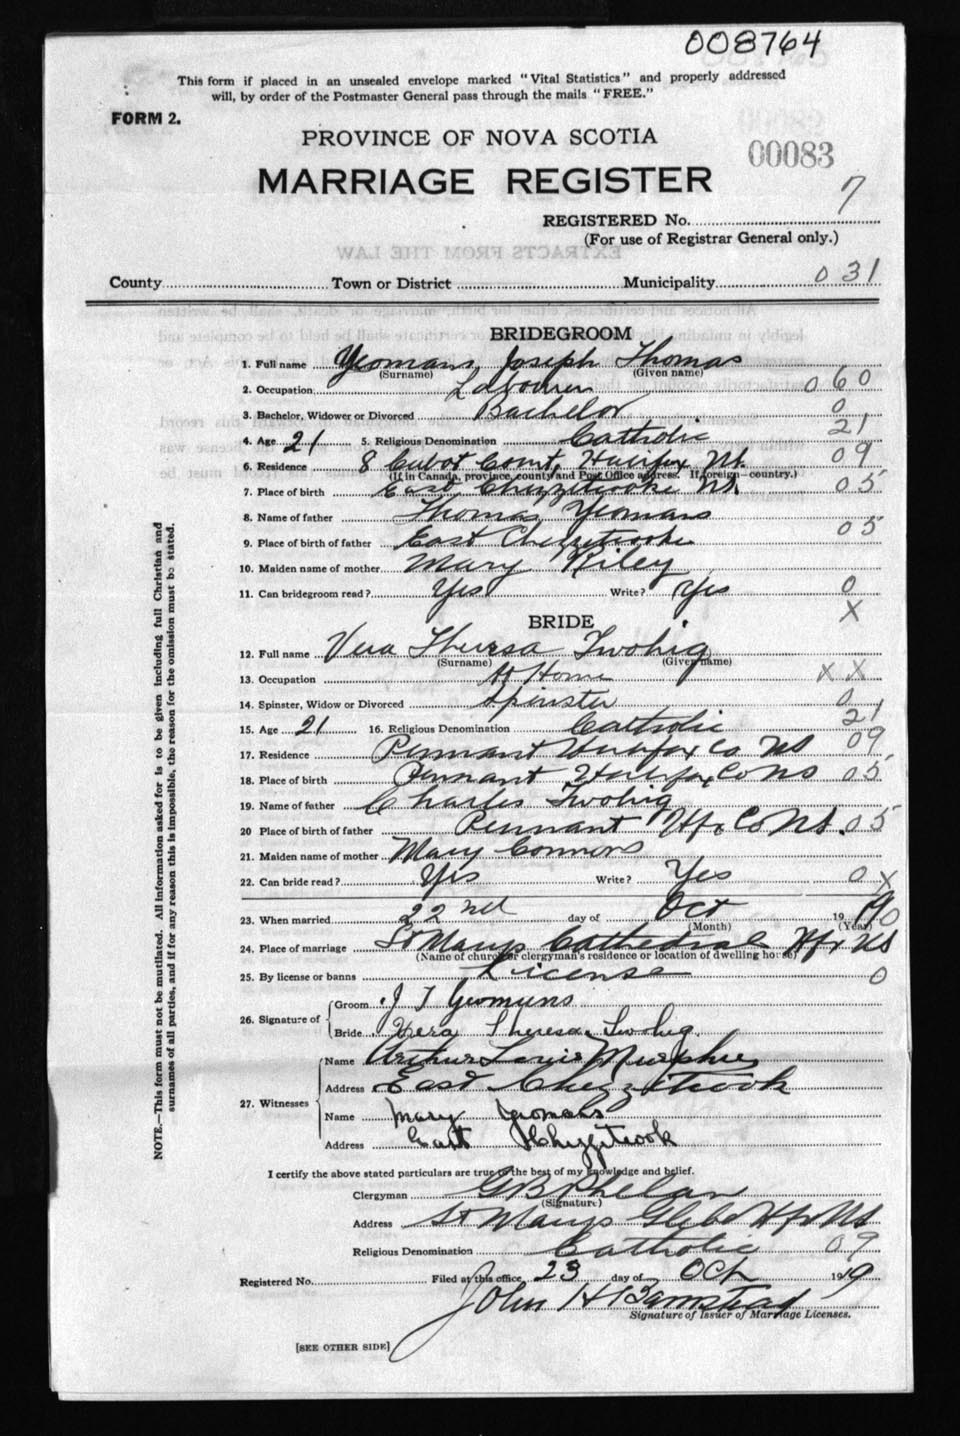 008764
This form if placed in an unsealed envelope marked "Vital Statistics" and properly addressed
will, by order of the Postmaster General pass through the mails "FREE."
FORM 2.
PROVINCE OF NOVA SCOTIA
00083
MARRIAGE REGISTER
7
REGISTERED No.
(For use of Registrar General only.)
EXTRACTS FROM THE LAW
County Town or District Municipality 031
BRIDEGROOM
1. Full name Yeomans, Joseph Thomas
(Surname) (Given name)
2. Occupation Labourer 060
3. Bachelor, Widower or Divorced Bachelor 0
4. Age 21 5. Religious Denomination Catholic 21
6. Residence 8 Cabot Court, Halifax NS. 09
(If in Canada, province, county and Post Office address. If foreign—country.)
7. Place of birth East Chezzetcooke NS. 05
8. Name of father Thomas Yeomans
9. Place of birth of father East Chezzetcooke 05
10. Maiden name of mother Mary Riley
11. Can bridegroom read? Yes Write? Yes 0
X
BRIDE
12. Full name Vera Theresa Twohig
(Surname) (Given name)
13. Occupation At Home X X
14. Spinster, Widow or Divorced Spinster 0
15. Age 21 16. Religious Denomination Catholic 21
17. Residence Pennant Halifax Co NS 09
18. Place of birth Pennant Halifax Co NS 05
19. Name of father Charles Twohig
20 Place of birth of father Pennant Hfx Co NS. 05
21. Maiden name of mother Mary Connors
22. Can bride read? Yes Write? Yes 0 X
23. When married 22nd day of Oct 19 19 0
(Month) (Year)
24. Place of marriage St Marys Cathedral Hfx NS
(Name of church or clergyman's residence or location of dwelling house)
25. By license or banns License 0
26. Signature of Groom J T Yeomans
Bride Vera Theresa Twohig
27. Witnesses Name Arthur Louis Murphy
Address East Chezzetcook
Name Mary Yeomans
Address East Chezzetcook
I certify the above stated particulars are true to the best of my knowledge and belief.
Clergyman G B Phelan
(Signature)
Address St Marys Glebe Hfx NS
Religious Denomination Catholic 09
Registered No. Filed at this office 23 day of Oct 1919
John H Barnstead
Signature of Issuer of Marriage Licenses.
[SEE OTHER SIDE]
NOTE.—This form must not be mutilated. All information asked for is to be given including full Christian and
surnames of all parties, and if for any reason this is impossible, the reason for the omission must be stated.